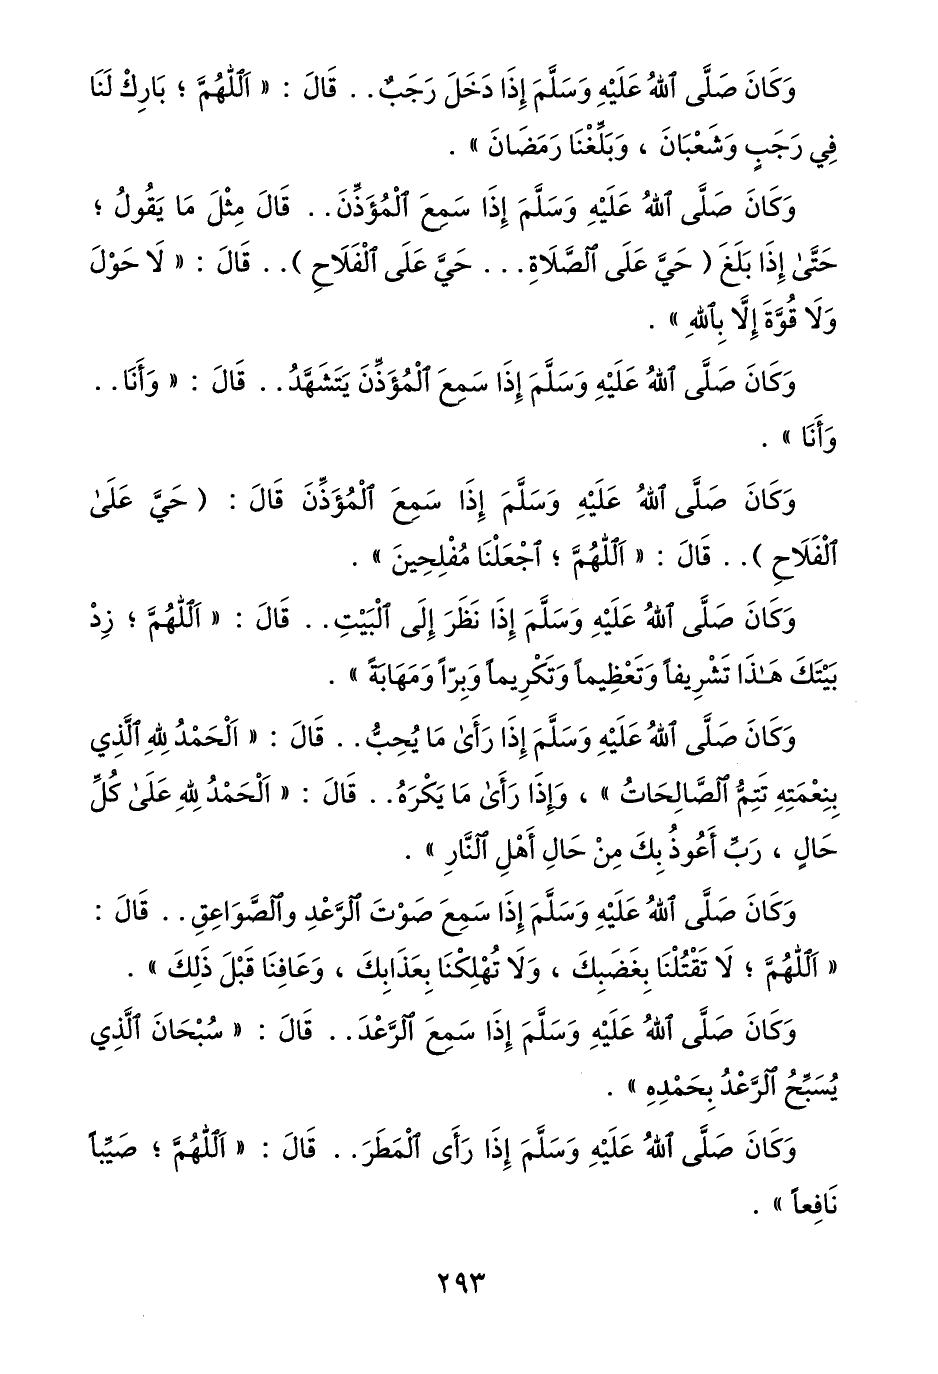 وَكَانَ صَلَّى ٱللهُ عَلَيْهِ وَسَلَّمَ إِذَا دَخَلَ رَجَبٌ.. قَالَ : « ٱللَّهُمَّ ؛ بَارِكْ لَنَا
فِي رَجَبٍ وَشَعْبَانَ ، وَبَلِّغْنَا رَمَضَانَ » .
وَكَانَ صَلَّى ٱللهُ عَلَيْهِ وَسَلَّمَ إِذَا سَمِعَ ٱلْمُؤَذِّنَ.. قَالَ مِثْلَ مَا يَقُولُ ؛
حَتَّىٰ إِذَا بَلَغَ ( حَيَّ عَلَى ٱلصَّلَاةِ... حَيَّ عَلَى ٱلْفَلَاحِ ).. قَالَ : « لَا حَوْلَ
وَلَا قُوَّةَ إِلَّا بِٱللهِ » .
وَكَانَ صَلَّى ٱللهُ عَلَيْهِ وَسَلَّمَ إِذَا سَمِعَ ٱلْمُؤَذِّنَ يَتَشَهَّدُ.. قَالَ : « وَأَنَا..
وَأَنَا » .
وَكَانَ صَلَّى ٱللهُ عَلَيْهِ وَسَلَّمَ إِذَا سَمِعَ ٱلْمُؤَذِّنَ قَالَ : ( حَيَّ عَلَىٰ
ٱلْفَلَاحِ ).. قَالَ : « ٱللَّهُمَّ ؛ ٱجْعَلْنَا مُفْلِحِينَ » .
وَكَانَ صَلَّى ٱللهُ عَلَيْهِ وَسَلَّمَ إِذَا نَظَرَ إِلَى ٱلْبَيْتِ.. قَالَ : « ٱللَّهُمَّ ؛ زِدْ
بَيْتَكَ هَـٰذَا تَشْرِيفاً وَتَعْظِيماً وَتَكْرِيماً وَبِرّاً وَمَهَابَةً » .
وَكَانَ صَلَّى ٱللهُ عَلَيْهِ وَسَلَّمَ إِذَا رَأَىٰ مَا يُحِبُّ.. قَالَ : « ٱلْحَمْدُ لِلهِ ٱلَّذِي
بِنِعْمَتِهِ تَتِمُّ ٱلصَّالِحَاتُ » ، وَإِذَا رَأَىٰ مَا يَكْرَهُ.. قَالَ : « ٱلْحَمْدُ لِلهِ عَلَىٰ كُلِّ
حَالٍ ، رَبِّ أَعُوذُ بِكَ مِنْ حَالِ أَهْلِ ٱلنَّارِ » .
وَكَانَ صَلَّى ٱللهُ عَلَيْهِ وَسَلَّمَ إِذَا سَمِعَ صَوْتَ ٱلرَّعْدِ وٱلصَّوَاعِقِ.. قَالَ :
« ٱللَّهُمَّ ؛ لَا تَقْتُلْنَا بِغَضَبِكَ ، وَلَا تُهْلِكْنَا بِعَذَابِكَ ، وَعَافِنَا قَبْلَ ذَلِكَ » .
وَكَانَ صَلَّى ٱللهُ عَلَيْهِ وَسَلَّمَ إِذَا سَمِعَ ٱلرَّعْدَ.. قَالَ : « سُبْحَانَ ٱلَّذِي
يُسَبِّحُ ٱلرَّعْدُ بِحَمْدِهِ » .
وَكَانَ صَلَّى ٱللهُ عَلَيْهِ وَسَلَّمَ إِذَا رَأَى ٱلْمَطَرَ.. قَالَ : « ٱللَّهُمَّ ؛ صَيِّباً
نَافِعاً » .
٢٩٣